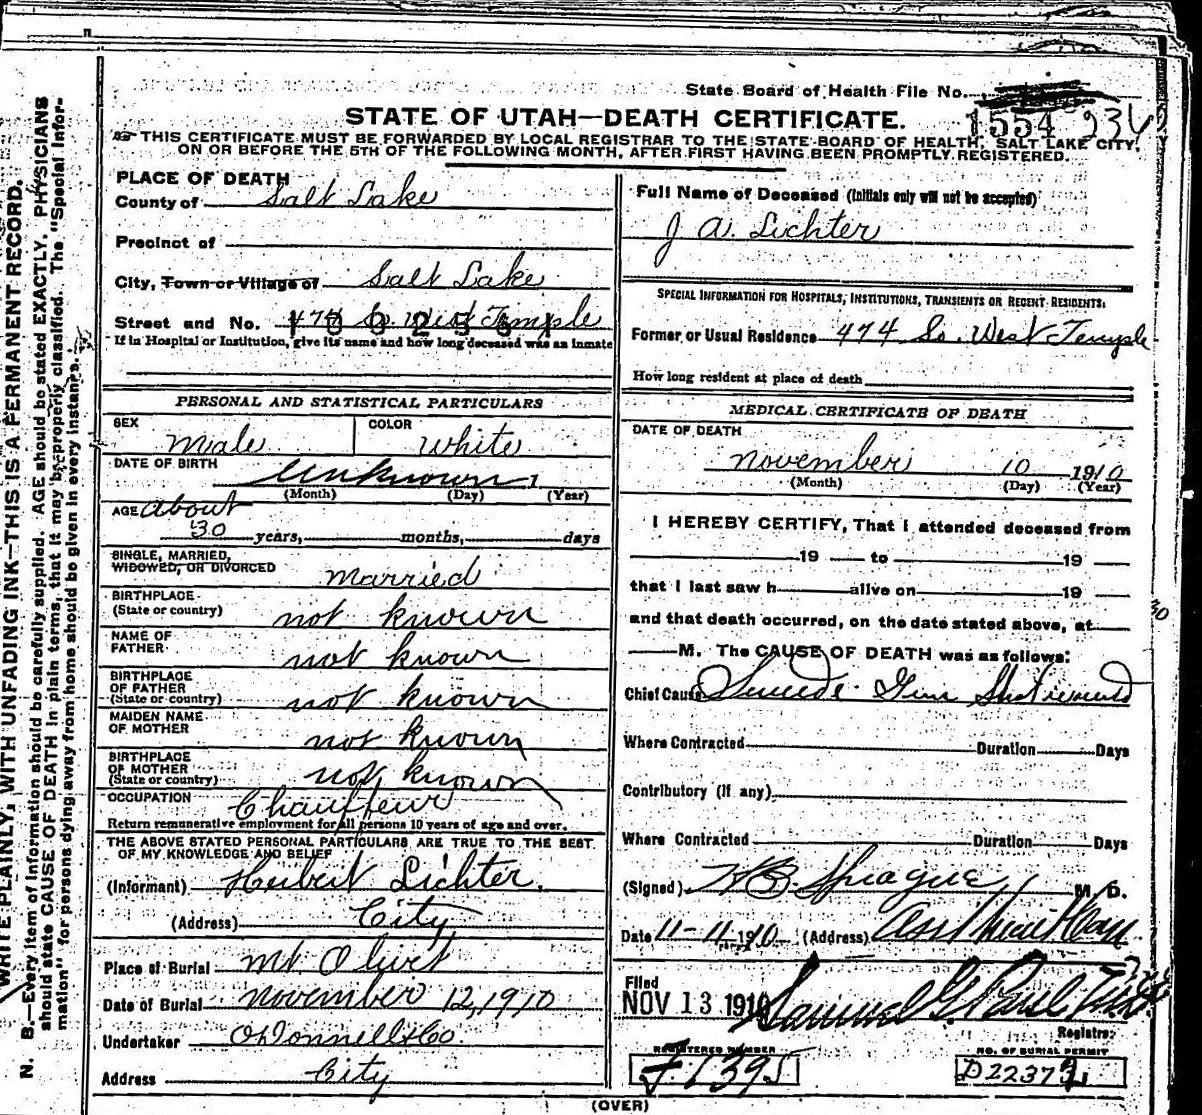 State Board of Health File No.
STATE OF UTAH—DEATH CERTIFICATE.
1554
THIS CERTIFICATE MUST BE FORWARDED BY LOCAL REGISTRAR TO THE STATE BOARD OF HEALTH, SALT LAKE CITY,
ON OR BEFORE THE 5TH OF THE FOLLOWING MONTH, AFTER FIRST HAVING BEEN PROMPTLY REGISTERED.
PLACE OF DEATH
County of Salt Lake
Precinct of
City, Town or Village of Salt Lake
Street and No. 474 So. West Temple
If in Hospital or Institution, give its name and how long deceased was an inmate
PERSONAL AND STATISTICAL PARTICULARS
SEX Male COLOR White
DATE OF BIRTH Unknown 1
(Month) (Day) (Year)
AGE About
30 years, months, days
SINGLE, MARRIED,
WIDOWED, OR DIVORCED Married
BIRTHPLACE
(State or country) not known
NAME OF
FATHER not known
BIRTHPLACE
OF FATHER
(State or country) not known
MAIDEN NAME
OF MOTHER not known
BIRTHPLACE
OF MOTHER
(State or country) not known
OCCUPATION Chauffeur
Return remunerative employment for all persons 10 years of age and over.
THE ABOVE STATED PERSONAL PARTICULARS ARE TRUE TO THE BEST
OF MY KNOWLEDGE AND BELIEF
(Informant) Herbert Lichter.
(Address) City
Place of Burial Mt. Olivet
Date of Burial November 12, 1910
Undertaker O'Donnell & Co.
Address City
Full Name of Deceased (Initials only will not be accepted)
J A. Lichter
SPECIAL INFORMATION FOR HOSPITALS, INSTITUTIONS, TRANSIENTS OR RECENT RESIDENTS.
Former or Usual Residence 474 So. West Temple
How long resident at place of death
MEDICAL CERTIFICATE OF DEATH
DATE OF DEATH
November 10 1910
(Month) (Day) (Year)
I HEREBY CERTIFY, That I attended deceased from
19 to 19
that I last saw h alive on 19
and that death occurred, on the date stated above, at
M. The CAUSE OF DEATH was as follows:
Chief Cause Suicide. Gun Shot wound
Where Contracted Duration Days
Contributory (if any)
Where Contracted Duration Days
(Signed) Sprague M. D.
Date 11-11-1910 (Address)
Filed
NOV 13 1910 Samuel G. Paul
Registrar
REGISTERED NUMBER
F 1395
NO. OF BURIAL PERMIT
D2237
(OVER)
WRITE PLAINLY, WITH UNFADING INK—THIS IS A PERMANENT RECORD.
N. B.—Every item of information should be carefully supplied. AGE should be stated EXACTLY. PHYSICIANS
should state CAUSE OF DEATH in plain terms, that it may be properly classified. The "Special Infor-
mation" for persons dying away from home should be given in every instance.